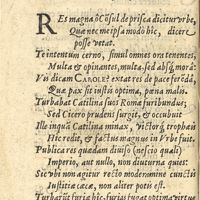 RES magna ô Cōsul de prisca dicitur vrbe,
Quæ nec me ipsa modo hic, dicere
posse vetat.
Te intentum cerno, simul omnes ora tenentes,
Multa & opinantes, multa sed absq; mora:
Vis dicam CAROLE? extat res de pace ferēda,
Quæ pax sit iustis optima, pœna malis.
Turbabat Catilina suos Roma furibundus;
Sed Cicero prudens surgit, & occubuit
Ille inquā Catilina minax, victorq; trophæū
Hic redit, & factus magnus in Vrbe fuit.
Publicare quædam diuiso (nescio quali)
Imperio, aut nullo, non diuturna quies:
Sic vbi non agitur recto moderamine cuncti
Iustitiæ cæcæ, non aliter potis est.
Turbarūt furiæ hic, furias fugat optima virtus